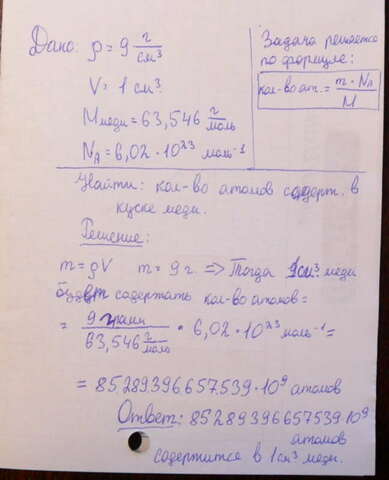 Дано: ρ = 9 г/см³
V = 1 см³
M меди = 63,546 г/моль
N_A = 6,02 · 10²³ моль⁻¹
Задача решается
по формуле:
кол-во ат. = m · N_A / M
Найти: кол-во атомов содерж. в
куске меди.
Решение:
m = ρV m = 9 г. => Тогда 1 см³ меди
будет содержать кол-во атомов =
= 9 грамм / 63,546 г/моль · 6,02 · 10²³ моль⁻¹ =
= 85,289396657539 · 10⁹ атомов
Ответ: 85289396657539 · 10⁹
атомов
содержится в 1 см³ меди.